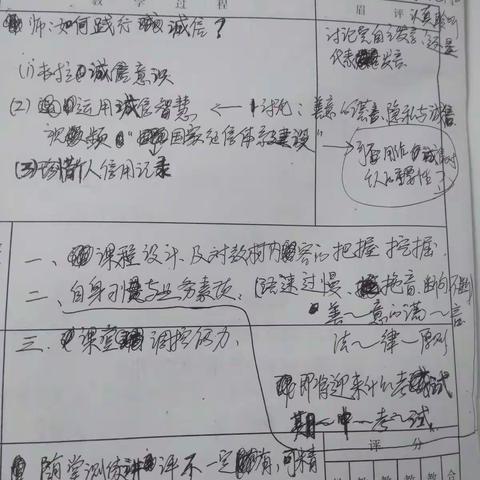 教 学 过 程
眉 评
师：如何践行诚信？
讨论完自主发言，这是
代表发言。
(1) 树立诚信意识
(2) 运用诚信智慧 ← 讨论：善意的谎言、隐私与诚信
视频“国家征信体系建设”
(3) 珍惜个人信用记录
一、课程设计、及对教材内容的把握 挖掘
二、自身习惯与业务素质（语速过慢、拖音、
善～意的谎～言
三、课堂调控能力
法～律～原则
即将迎来什么考试
期～中～考～试
评 分
随堂测练讲评不一定有，可精